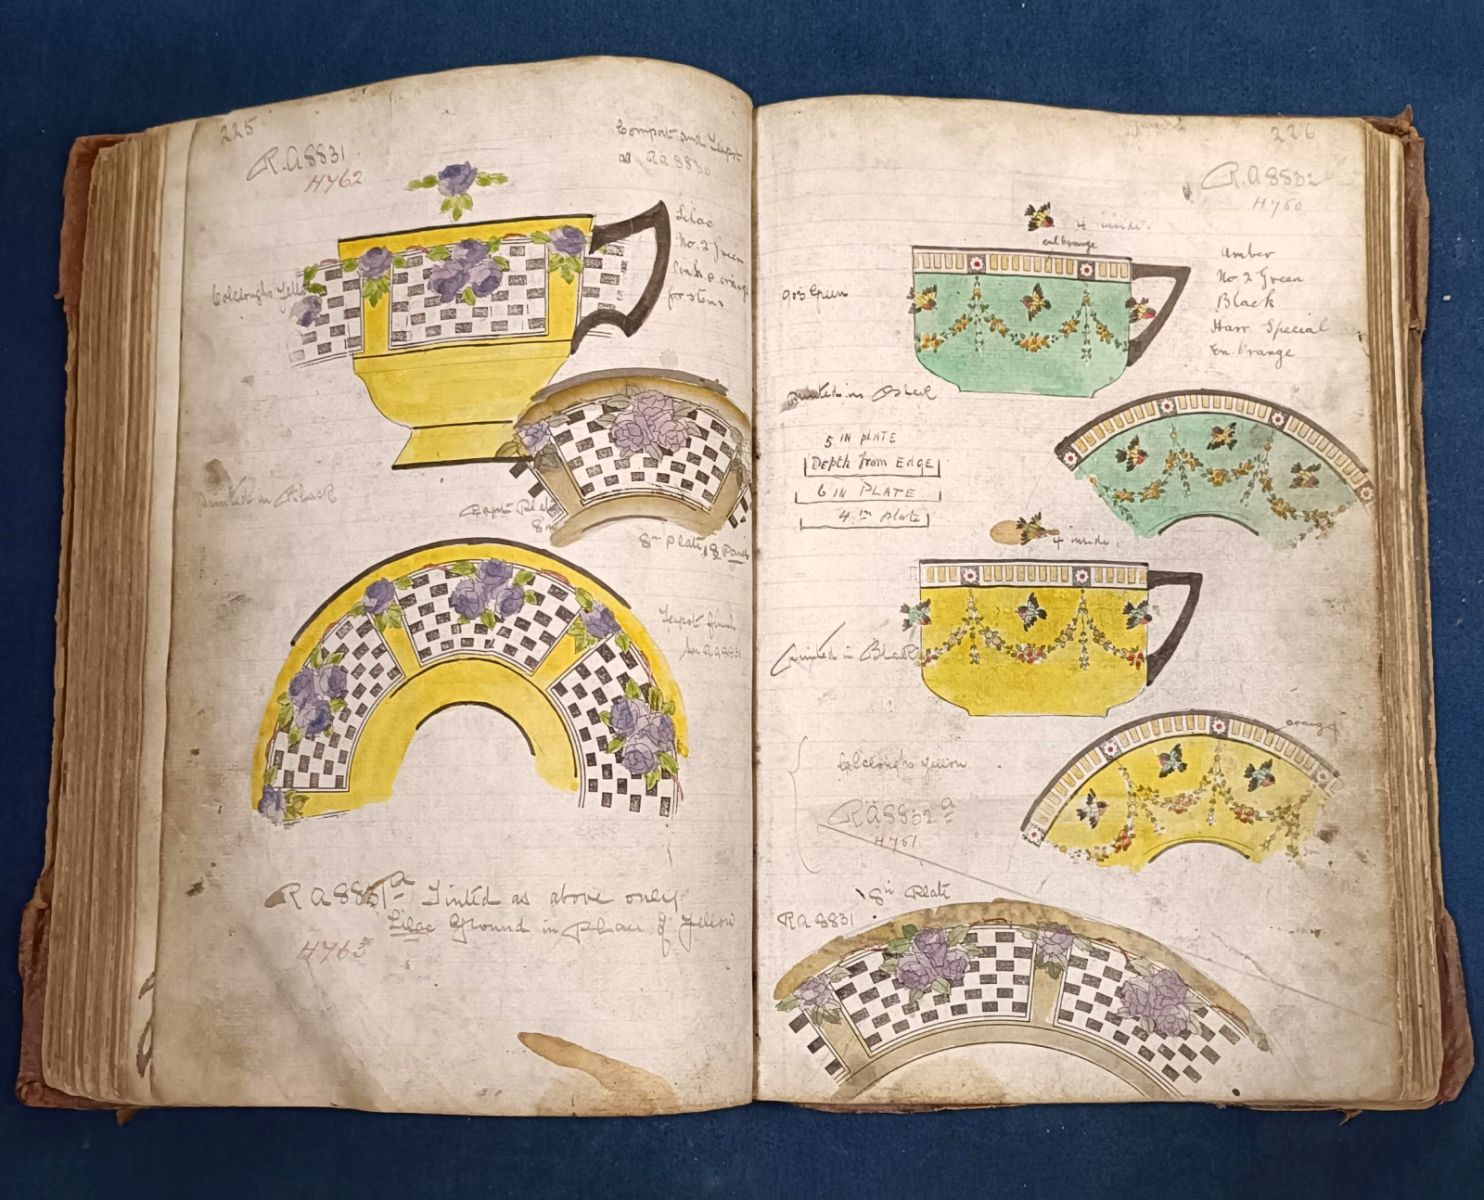 225
R.A 8831
H762
Comport and Teapot
as RA 8830
Lilac
No. 2 Green
for stems
Colcloughs Yello
Printed in Black
8in
8in Plate, 8 Panels
Teapot finish
as RA 8831
RA 8831a Tinted as above only
Lilac Ground in place of Yellow
H763
226
R.A 8832
H760
4 inside.
enl Orange
Amber
No. 2 Green
Black
Harr Special
En. Orange
903 Green
Printed in Black
5 IN PLATE
Depth from EDGE
6 IN PLATE
4 in Plate
4 inside.
Printed in Black
orange
Colcloughs Yellow
RA 8832a
H761
8in Plate
RA 8831